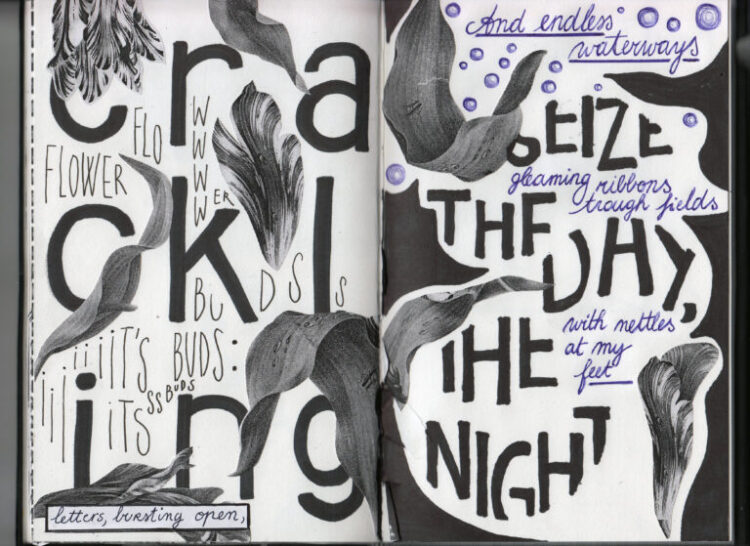 cra
FLO
FLOWER
W
W
W
W
W
WER
ckl
BUDS
s
iiiiiiT'S BUDS:
iTSSS BUDS
ing
letters, bursting open,
And endless
waterways
SEIZE
gleaming ribbons
trough fields
THE
DAY,
with nettles
at my
feet
THE
NIGHT